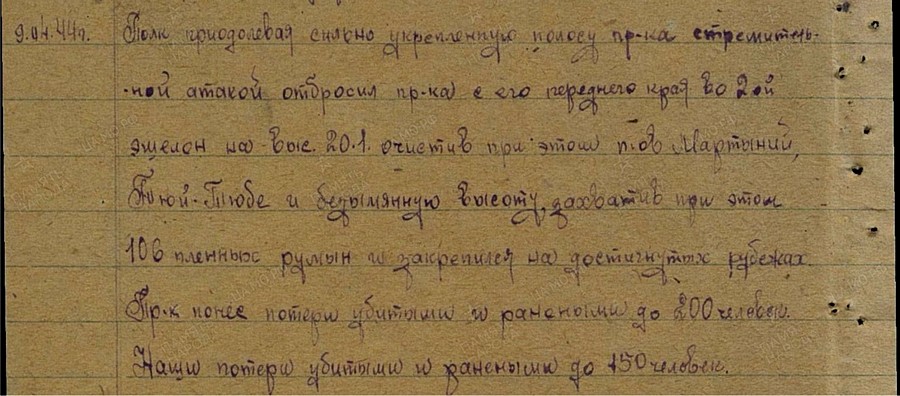 9.04.44г. Полк приодолевая сильно укрепленную полосу пр-ка стремитель-
-ной атакой отбросил пр-ка с его переднего края во 2ой
эшелон на выс. 20.1. очистив при этом п-ов Мартыний,
Тюй-Тюбе и безымянную высоту, захватив при этом
106 пленных румын и закрепился на достигнутых рубежах.
Пр-к понес потери убитыми и ранеными до 200 человек.
Наши потери убитыми и ранеными до 150 человек.